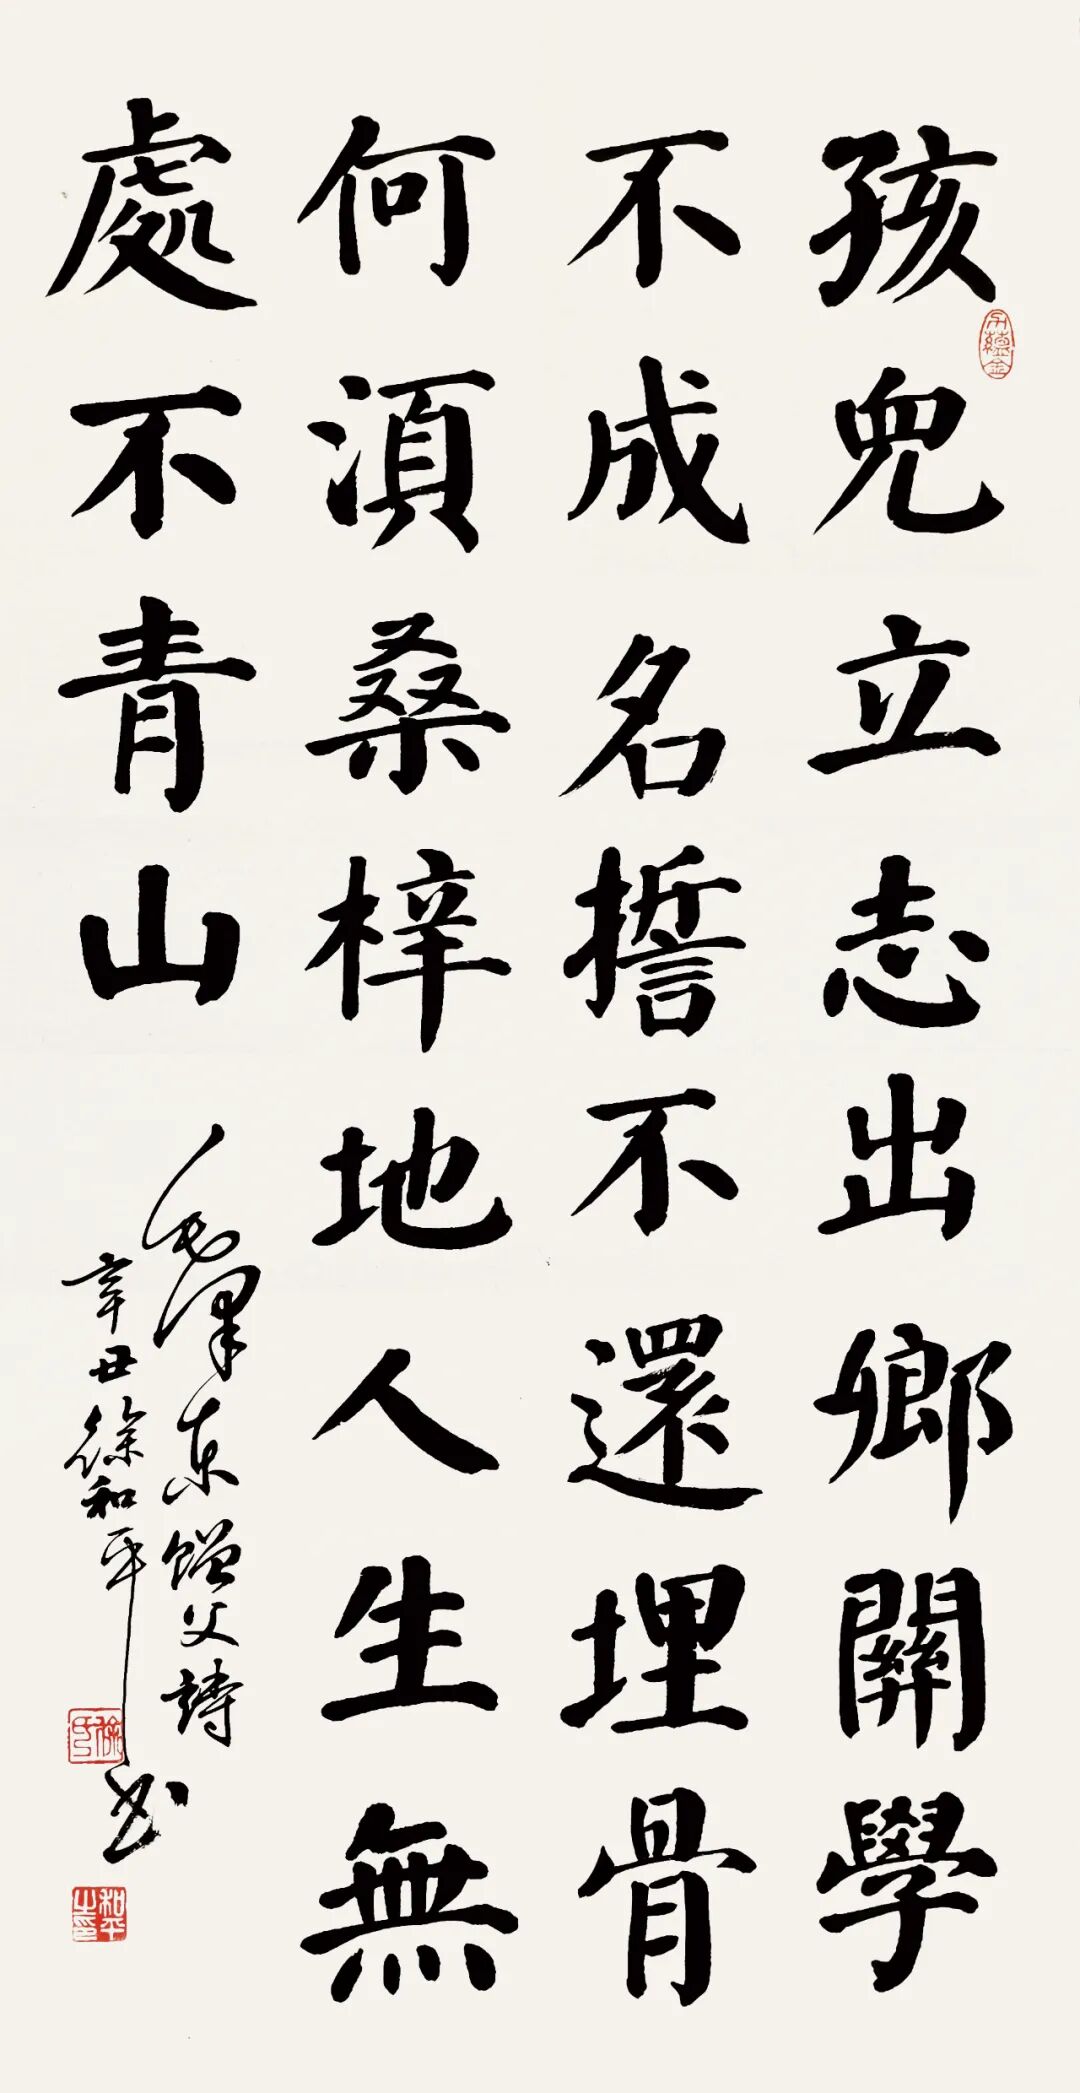 孩兒立志出鄉關學
不成名誓不還埋骨
何須桑梓地人生無
處不青山
毛澤東贈父詩
辛丑徐和平书
徐氏
和平之印